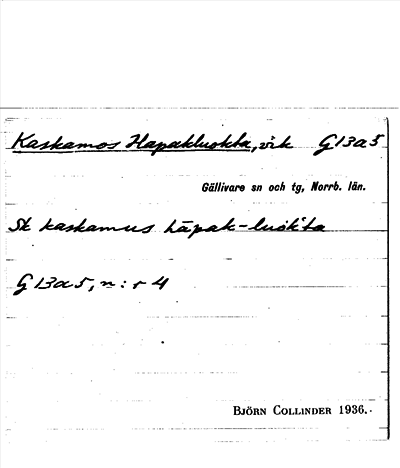 Kaskamos Hapakluokta, vik G13a5
Gällivare sn och tg, Norrb. län.
Sk kaskamus hāpak-luok'ta
G13a5, n:r 4
BJÖRN COLLINDER 1936.